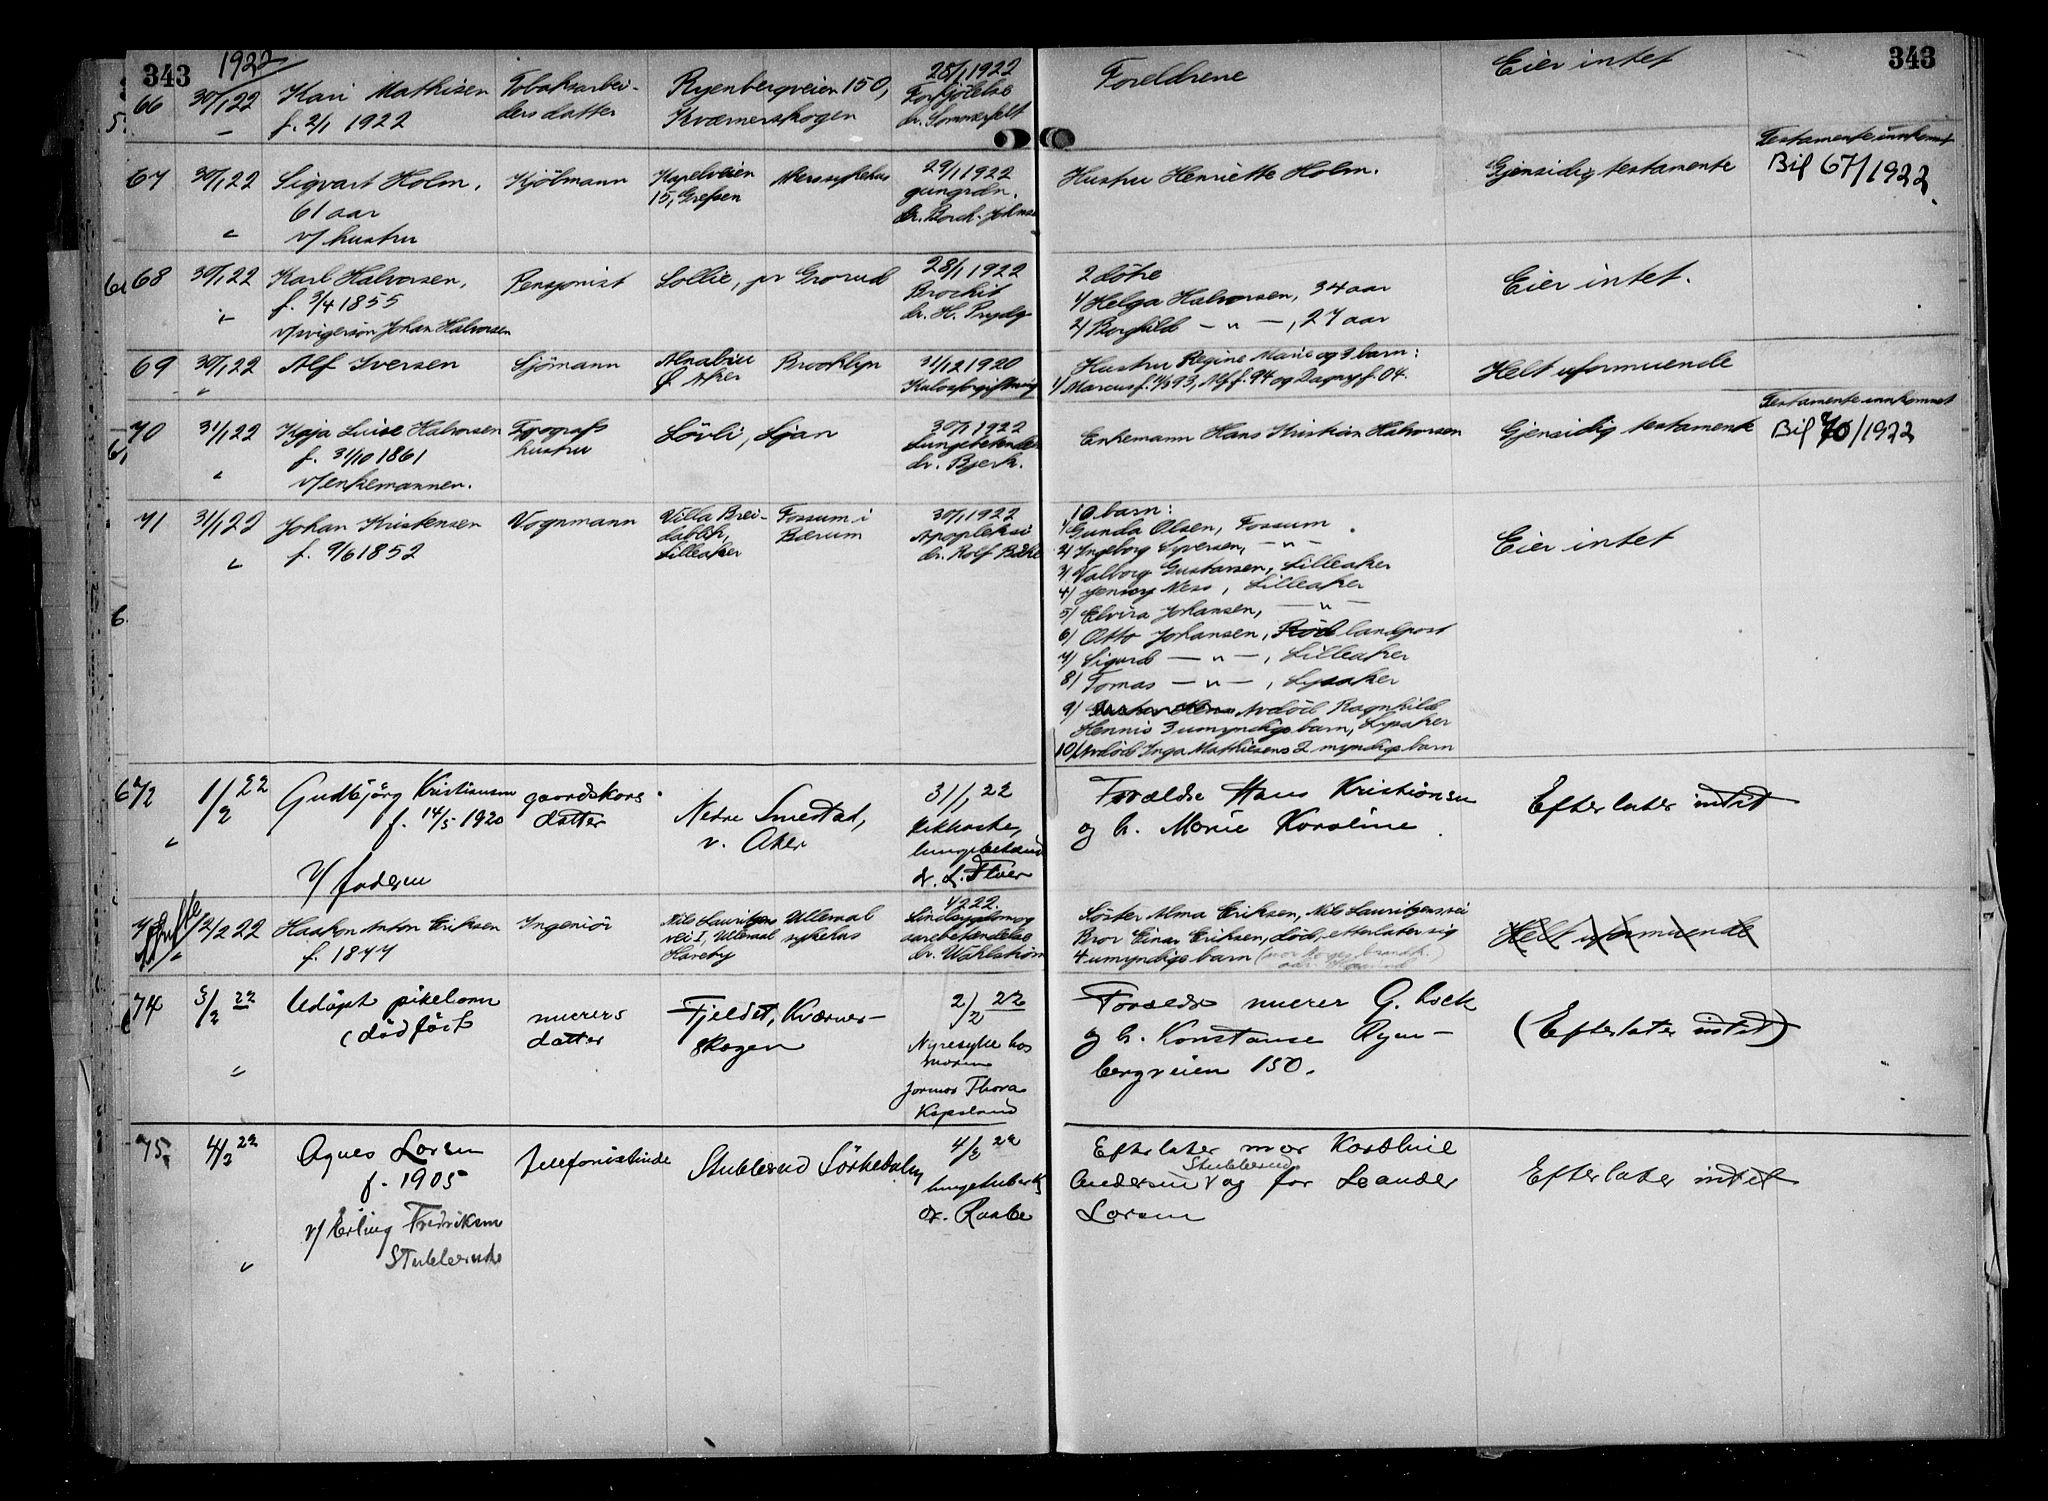 343
1922
343
66
30/1 22
Kari Mathisen
f. 2/1 1922
Tobaksarbei-
dersdatter
Ryenbergveien 150,
Kværnerskogen
28/1 1922
Forkjölelse
dr. Sommerfelt
Foreldrene
Eier intet
67
30/1 22
Sigvart Holm,
61 aar
v/ hustru
Kjölmann
Kapelveien
15, Grefsen
Akers sykehus
29/1 1922
gangræn.
dr. Borch-Johnse
Hustru Henriette Holm.
Gjensidig testamente
Testamente innkomet
Bil 67/1922
68
30/1 22
Karl Halvorsen,
f. 3/4 1855
v/svigersön Johan Halvorsen
Pensjonist
Sollie, pr Grorud
28/1 1922
Brochit
dr. H. Prydz
2 dötre
1/ Helga Halvorsen, 34 aar
2/ Borghild — " —, 27 aar
Eier intet.
69
30/1 22
Alf Iversen
Sjömann
Alnabru
f. Aker
Brooklyn
31/12 1920
Kulosforgiftning
Hustru Regine Marie og 3 barn:
1/ Marcus f. 93, Alf f. 94 og Dagny f. 04.
Helt uformuende
70
31/1 22
Kaja Luise Halvorsen
f. 31/10 1861
v/enkemannen.
Typografs
hustru
Lövli, Ljan
30/1 1922
Lungebetendelse
dr. Bjerk.
Enkemann Hans Kristian Halvorsen
Gjensidig testamente
Testamente innkomet
Bil 70/1922
71
31/1 22
Johan Kristensen
f. 9/6 1852
Vognmann
Villa Brei-
dablik,
Lilleaker
Fossum i
Bærum
30/1 1922
Apopleksi
dr. Rolf
10 barn:
1/ Gunda Olsen, Fossum
2/ Ingeborg Syversen, — " —
3/ Valborg Gustavsen, Lilleaker
4/ Jenny Ness, Lilleaker
5/ Elvira Johansen, — " —
6/ Otto Johansen, Röd landpost
7/ Sigurd — " —, Lilleaker
8/ Tomas — " —, Lysaker
9/ Avdöd Ragnhild
Hennis 3 umyndige barn, Lysaker
10/ Avdöd Inga Mathiesens 2 myndige barn
Eier intet
72
1/2 22
Gudbjörg Kristiansen
f. 14/5 1920
v/ faderen
gaardskars
datter
Nedre Smestad,
v. Aker
31/1 22
Kikhoste,
lungebetænd
dr. L.
Forældre Hans Kristiansen
og h. Marie Karoline
Efterlater intet
2/2 22
Haakon Anton Eriksen
f. 1877
Ingeniör
Nils Lauritzens
vei I, Ulleval
Haveby
Ullevaal
sykehus
1/2 22.
Sindsygdom og
aarebetendelse
dr. Wahlström
Söster Alma Eriksen, Nils Lauritzens vei
Bror Einar Eriksen, död, etterlater sig
4 umyndige barn
Helt uformuende
74
3/2 22
Udöpt pikebarn
(dödfödt
murers
datter
Fjeldet, Kværner-
skogen
2/2 22
Nyresyke hos
moren
jormor Thora
Kapsland
Forældre murer G. Lock
og h. Konstanse Ryen-
bergveien 150.
(Efterlater intet)
75
4/2 22
Agnes Larsen
f. 1905
v/ Erling Fredriksen
Stubberud
telefonistinde
Stubberud Sörkedalen
4/2 22
lungetuberk
dr. Raabe
Efterlater mor Kathrine
Stubberud
Andersen og far Leander
Larsen
Efterlater intet